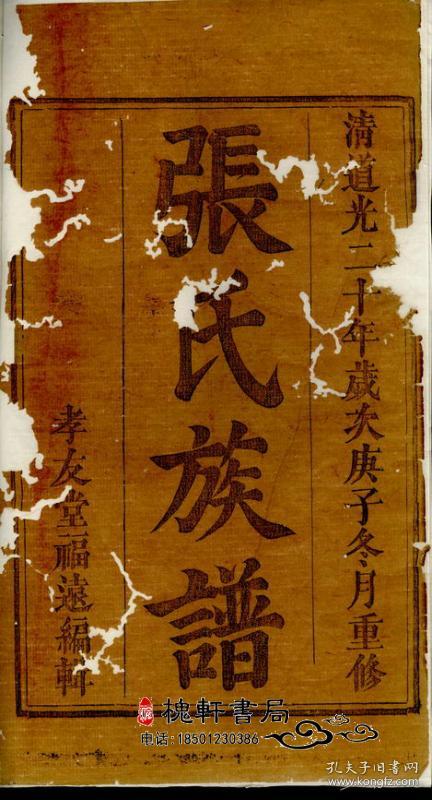 清道光二十年歲次庚子冬月重修
張氏族譜
孝友堂福遠編輯
槐軒書局
电话:18501230386
孔夫子旧书网
www.kongfz.com